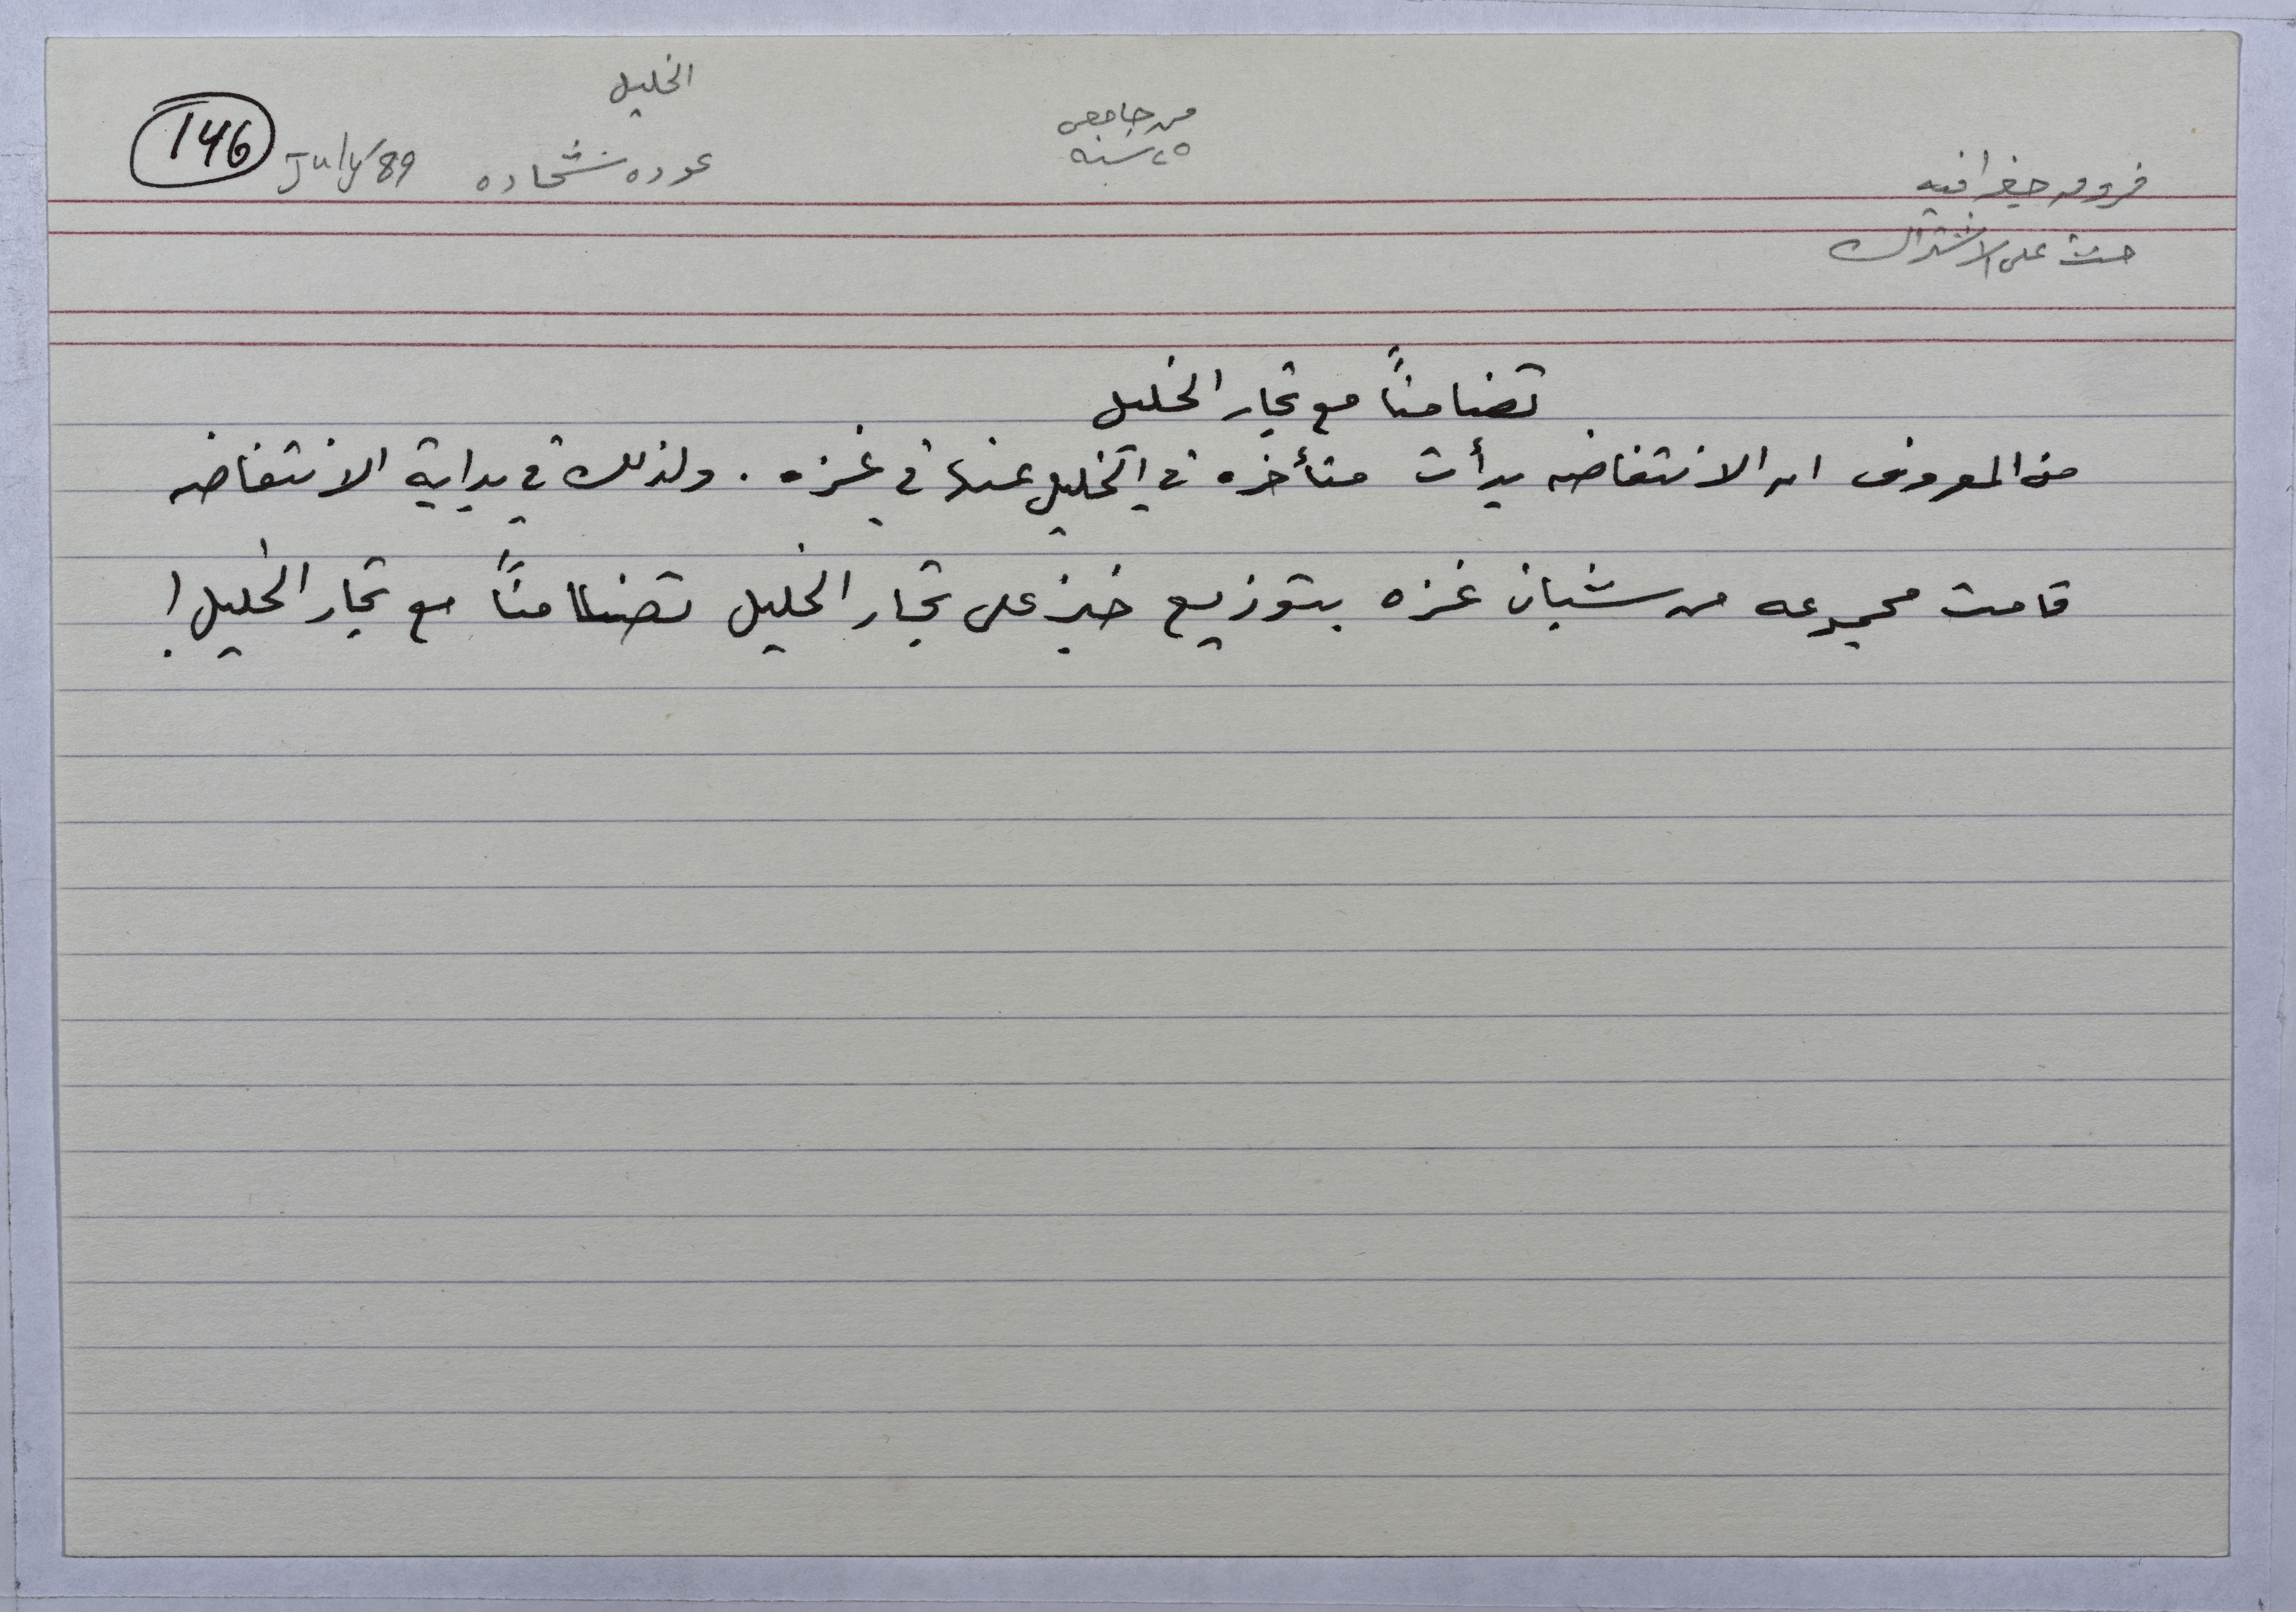 الخليل
146
July/89
عوده شحاده
من جامعي
٢٥ سنه
فروق جغرافيه
حث على الاشتراك
تضامناً مع تجار الخليل
من المعروف ان الانتفاضه بدأت متأخره في الخليل عنها في غزه . ولذلك في بداية الانتفاضه
قامت مجموعه من شبان غزه بتوزيع خبز على تجار الخليل تضامناً مع تجار الخليل !